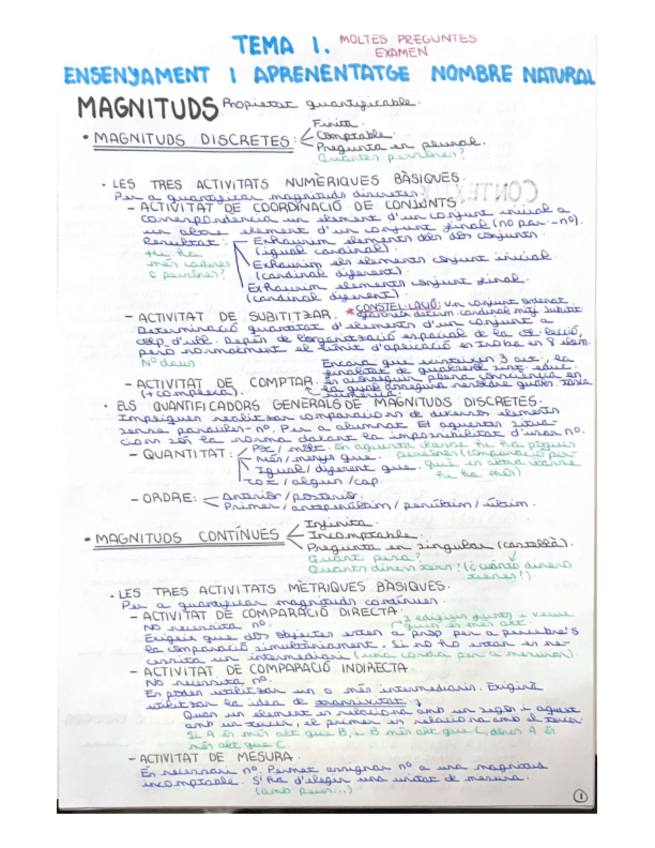 TEMA 1. MOLTES PREGUNTES EXAMEN
ENSENYAMENT I APRENENTATGE NOMBRE NATURAL
MAGNITUDS Propietat quantificable.
• MAGNITUDS DISCRETES:
Finita.
Comptable.
Pregunta en plural.
Quantes persones?
• LES TRES ACTIVITATS NUMÈRIQUES BÀSIQUES.
Per a quantificar magnituds discretes.
- ACTIVITAT DE COORDINACIÓ DE CONJUNTS
correspondencia un element d'un conjunt inicial a
un altre element d'un conjunt final (no par.-nº).
Resultat:
Exhaurim elements dels dos conjunts.
(igual cardinal).
Exhaurim els elements conjunt inicial.
(cardinal diferent).
Exhaurim elements conjunt final.
(cardinal diferent).
hi ha
més cadires
o persones?
- ACTIVITAT DE SUBITITZAR. * CONSTEL·LACIÓ: Un conjunt ordenat
determ. cardinal mitj subitit
Determinació quantitat d'elements d'un conjunt a
colp d'ull. Depén de l'organització espacial de la col·lecció,
però normalment el límit d'aplicació es troba en 8 elem.
Nº daus.
- ACTIVITAT DE COMPTAR.
(+complexa).
Encara que existixen 3 act., la
finalitat de qualsevol sist. educ.
és aconseguir plena consciència en
la qual assegura resoldre qualn. tasca
numèrica.
• ELS QUANTIFICADORS GENERALS DE MAGNITUDS DISCRETES.
Impliquen realitzar comparacions de diversos elements
sense paraules-nº. Per a alumnat EI aquestes situa-
cions són la norma davant la impossibilitat d'usar nº.
- QUANTITAT:
Poc/molt. En aquesta classe hi ha poques
Més/menys que. persones (comparació per-
Igual/diferent que. què en altra classe
Tot/algun/cap. hi ha més)
- ORDRE:
Anterior/posterior.
Primer/antepenúltim/penúltim/últim.
• MAGNITUDS CONTÍNUES
Infinita.
Incomptable.
Pregunta en singular (castellà).
Quant pesa?
Quants diners tens? (¿cuánto dinero
tienes?).
• LES TRES ACTIVITATS MÈTRIQUES BÀSIQUES.
Per a quantificar magnituds contínues.
- ACTIVITAT DE COMPARACIÓ DIRECTA.
2 edificis junts i veure
quin és més alt.
No necessita nº.
Exigeix que dos objectes esten a prop per a percebre's
la comparació simultàniament. Si no ho estan es ne-
cessita un intermediari (una corda per a mesurar)
- ACTIVITAT DE COMPARACIÓ INDIRECTA.
No necessita nº.
Es poden utilitzar un o més intermediaris. Exigirà
utilitzar la idea de transivitat
Quan un element es relaciona amb un segon i aquest
amb un tercer, el primer es relaciona amb el tercer
Si A és més alt que B, i B més alt que C, doncs A és
més alt que C.
- ACTIVITAT DE MESURA.
És necessari nº. Permet assignar nº a una magnitud
incomptable. S'ha d'elegir una unitat de mesura.
(amb peus...)
1